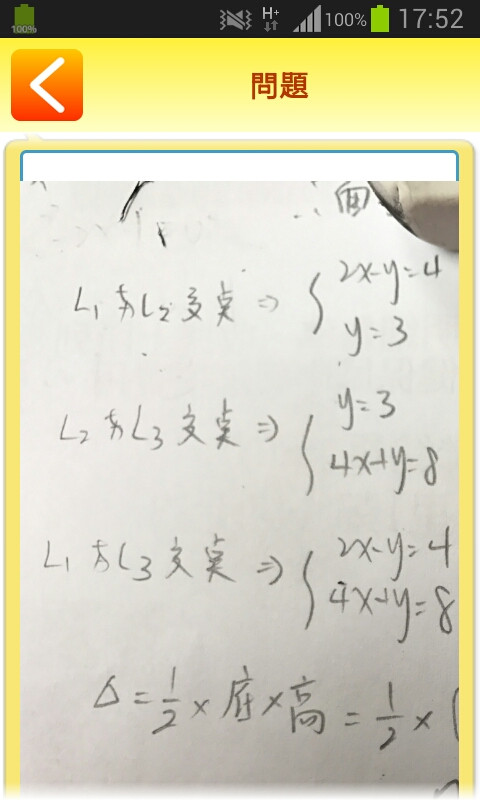 100%
H+ 100% 17:52
問題
∴面
L1 与L2 交点 => { 2x-y=4
y=3
L2 与L3 交点 => { y=3
4x+y=8
L1 与L3 交点 => { 2x-y=4
4x+y=8
Δ = 1/2 × 底 × 高 = 1/2 × (